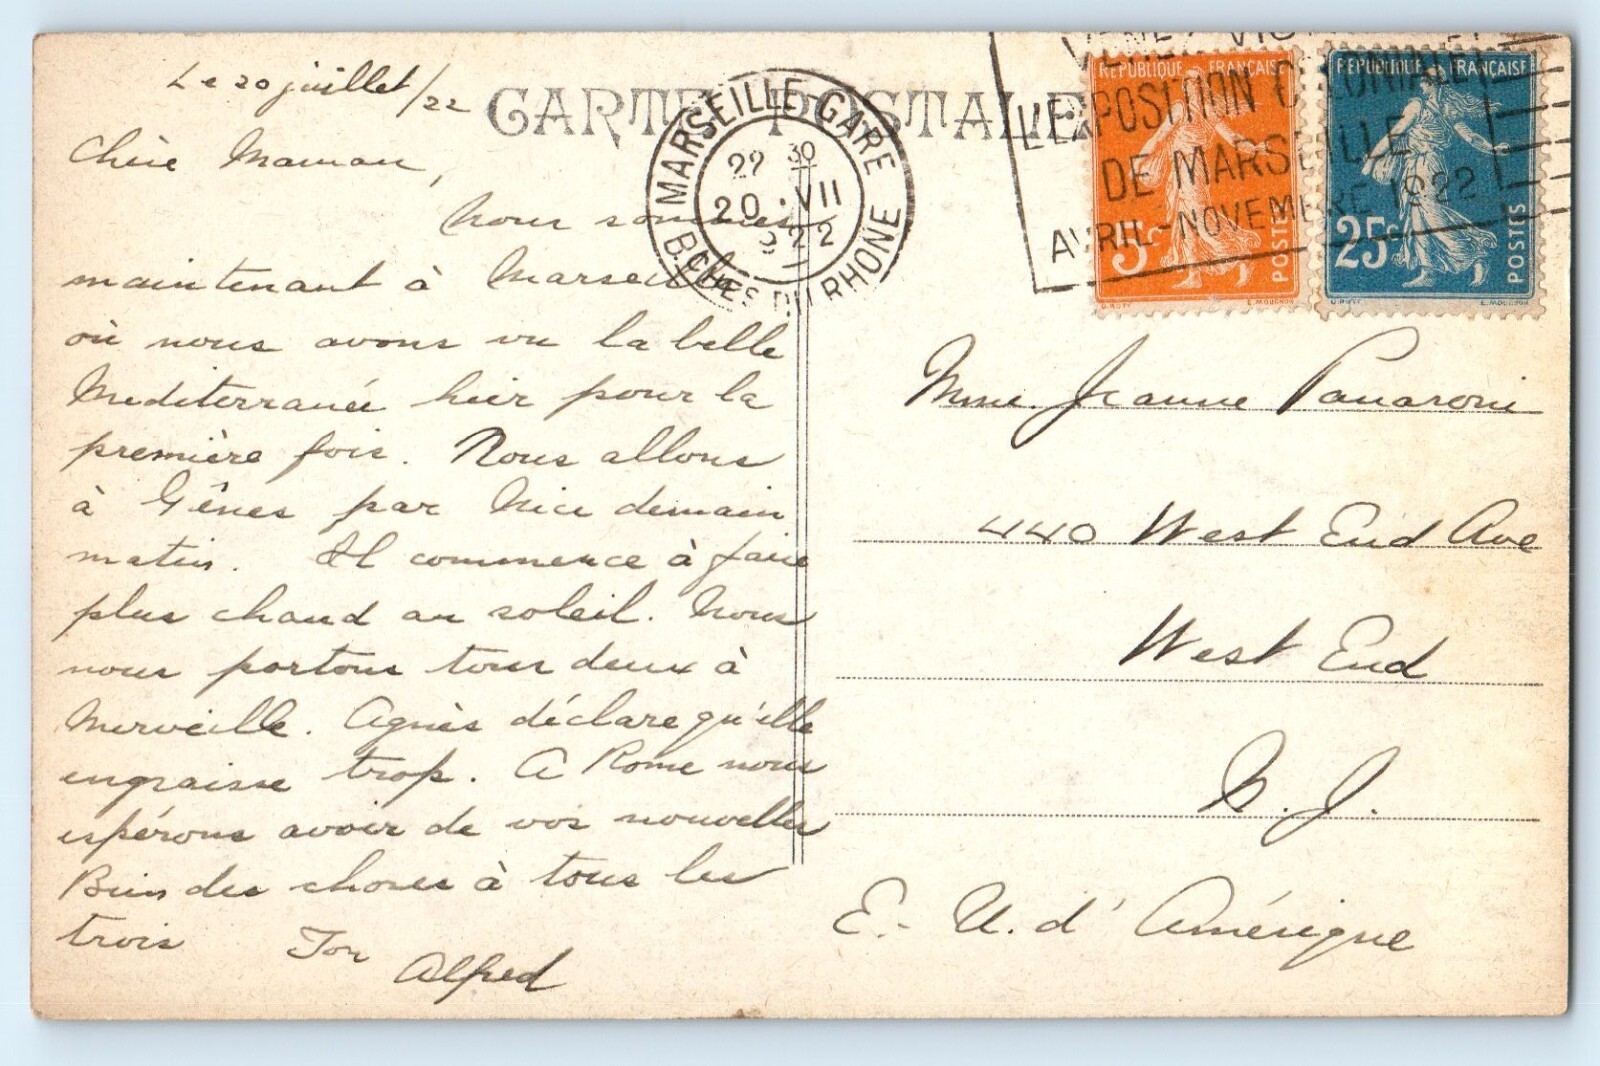 Le 20 juillet/22
CARTE POSTALE
Chère Maman,
Nous sommes
maintenant à Marseille
où nous avons vu la belle
Mediterranée hier pour la
première fois. Nous allons
à Gênes par Nice demain
matin. Il commence à faire
plus chaud au soleil. Nous
nous portons tous deux à
merveille. Agnès déclare qu'elle
engraisse trop. A Rome nous
espérons avoir de vos nouvelles
Bien des choses à tous les
trois Ton
Alfred
MARSEILLE-GARE
22 30
20 · VII
22
B. CHES DU RHONE
VENEZ
L'EXPOSITION COLONIALE
DE MARSEILLE
AVRIL-NOVEMBRE 1922
REPUBLIQUE FRANÇAISE
5c
POSTES
O. ROTY E. MOUCHON
REPUBLIQUE FRANÇAISE
25c
POSTES
O. ROTY E. MOUCHON
Mme. Jeanne Panaroni
440 West End Ave
West End
N. J.
E.-U. d'Amérique